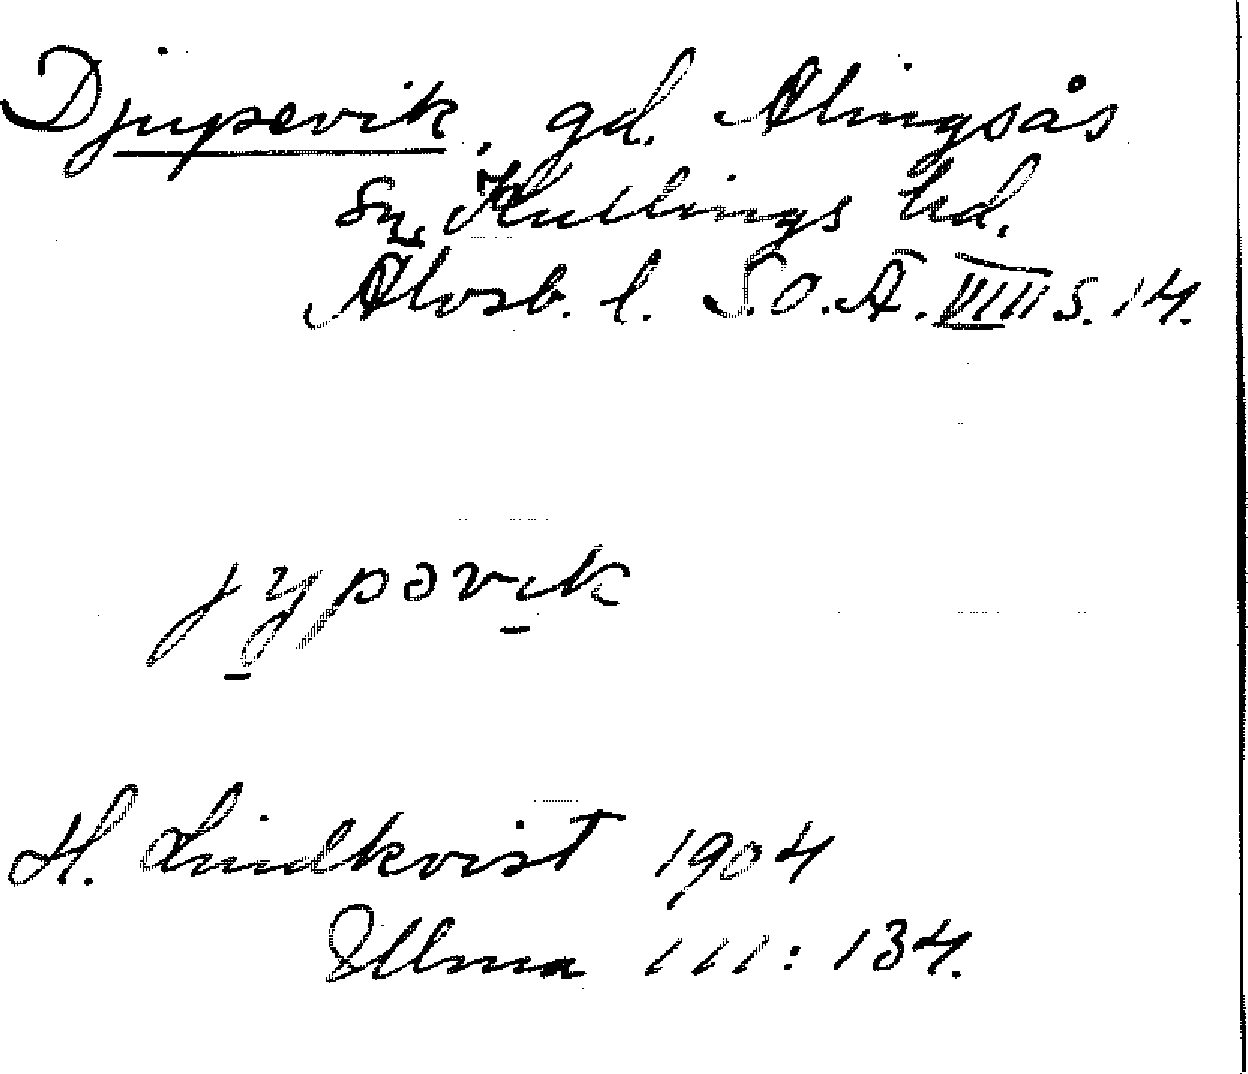 Djupevik, gd. Alingsås
sn, Kullings hd.
Älvsb. l. S.O.Ä. VIII s. 14.
jypəvik
H. Lindkvist 1904
Ulma 111: 134.